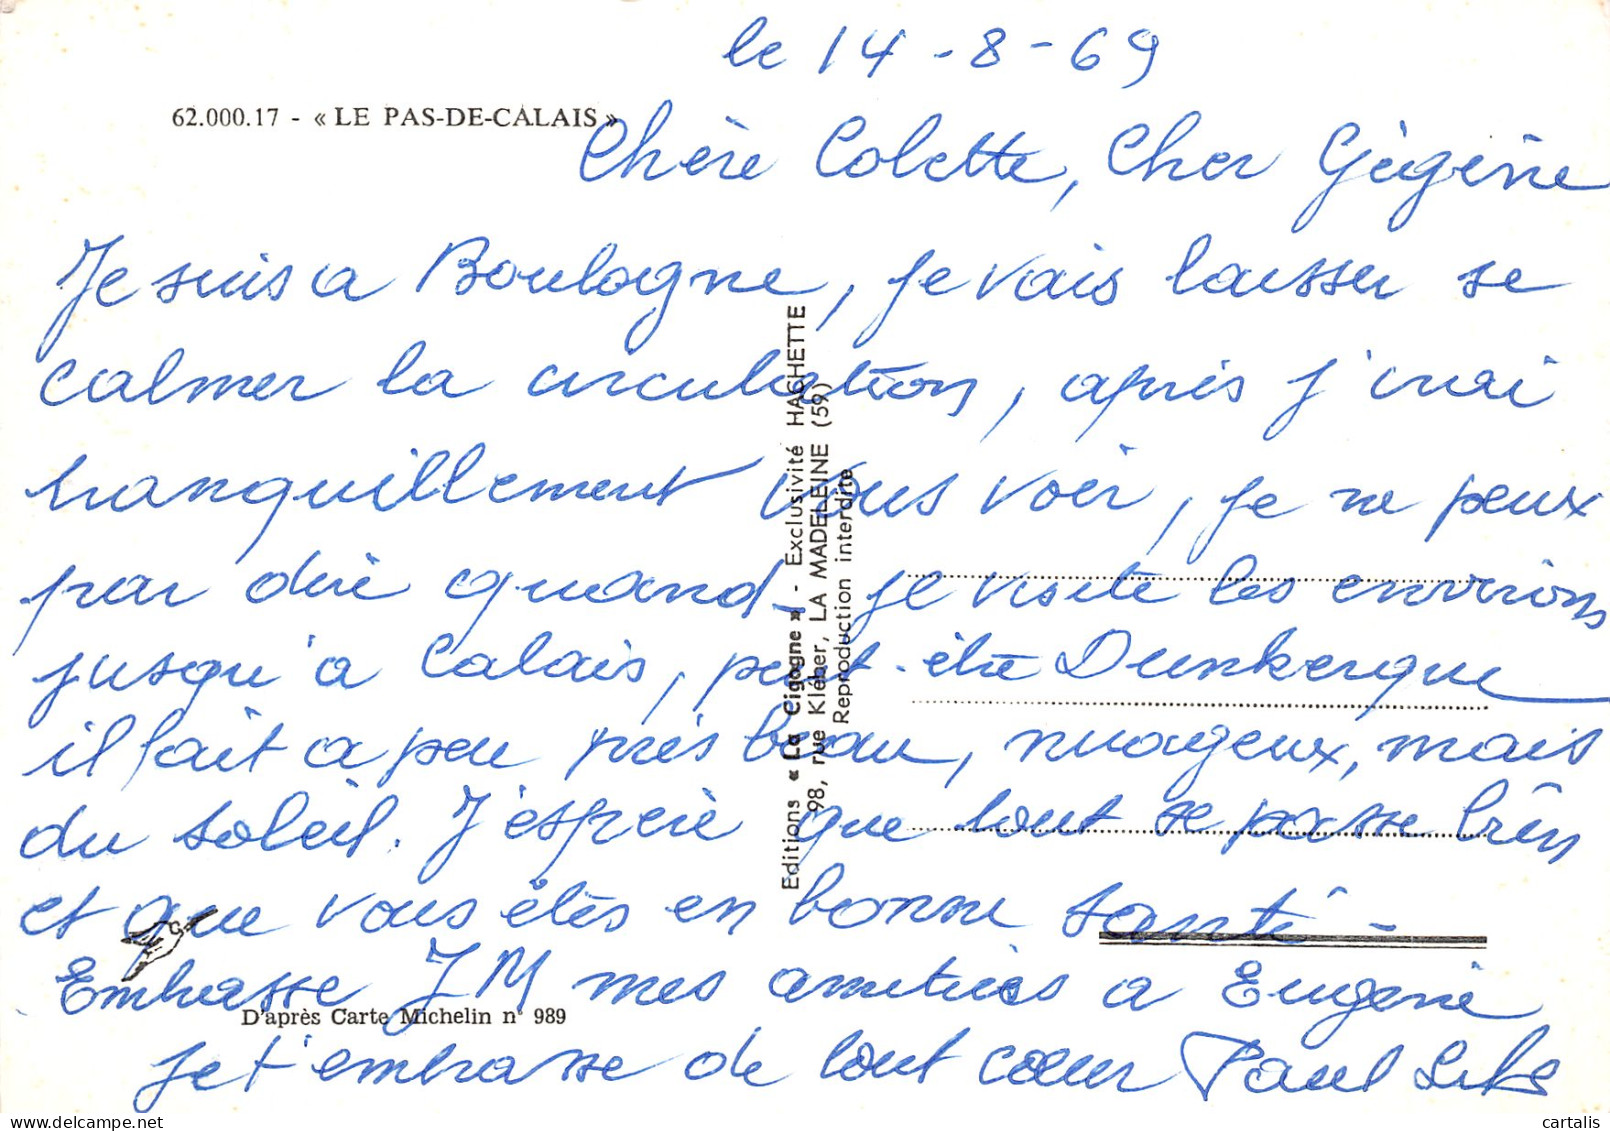 le 14-8-69
62.000.17 - « LE PAS-DE-CALAIS »
Chère Colette, Cher Gégène
Je suis a Boulogne, je vais laisser se
calmer la circulation, après j'irai
tranquillement vous voir, je ne peux
par dire quand - je visite les environs
jusqu'a Calais, peut-être Dunkerque
il fait a peu près beau, nuageux, mais
du soleil. J'espère que tout se passe bien
et que vous êtes en bonne santé -
Embrasse JM mes amitiés a Eugène
D'après Carte Michelin n° 989
je t'embrasse de tout cœur Paul
Editions « La Cigogne » - Exclusivité HACHETTE
98, rue Kléber, LA MADELEINE (59)
Reproduction interdite
cartalis